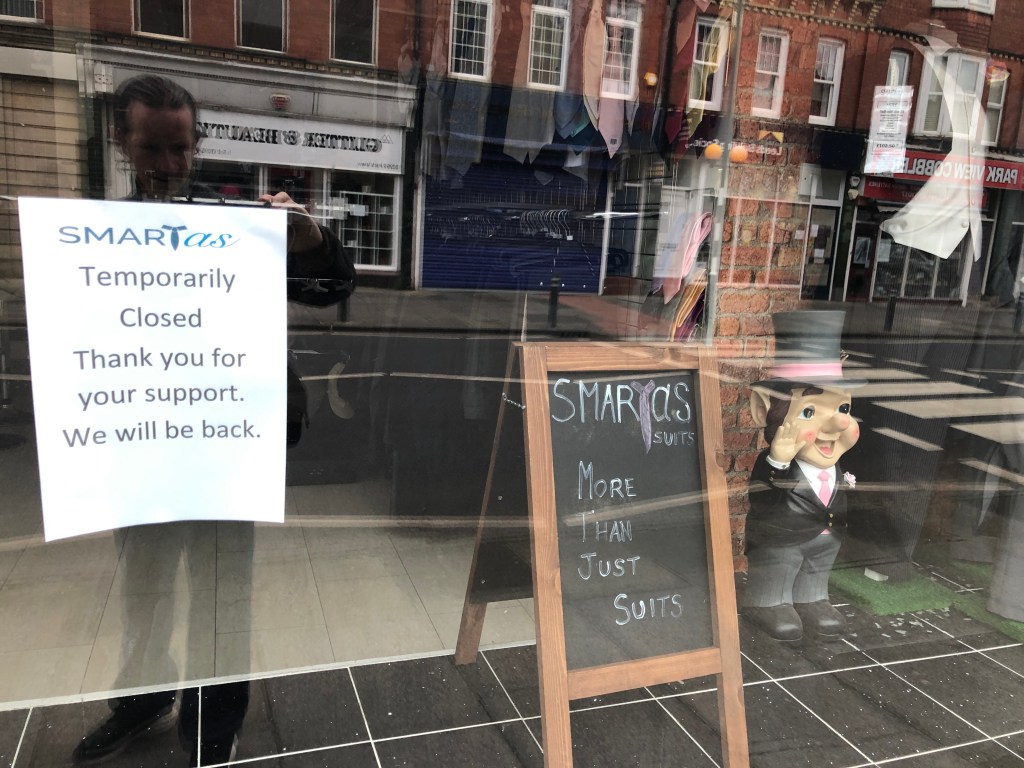 SMARTas
Temporarily
Closed
Thank you for
your support.
We will be back.
SMARTas
SUITS
MORE
THAN
JUST
SUITS
GLITTER & BEAUTY
PARK VIEW COBBLE